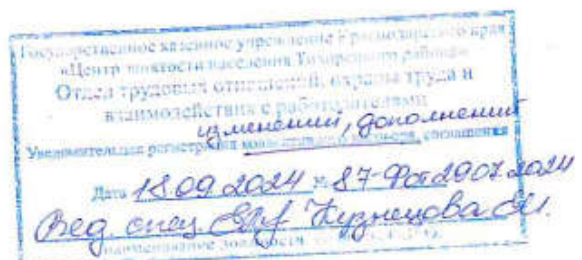 Государственное казенное учреждение Краснодарского края
«Центр занятости населения Тихорецкого района»
Отдел трудовых отношений, охраны труда и
взаимодействия с работодателями
изменений, дополнений
Уведомительная регистрация коллективного договора, соглашения
Дата 18.09.2024 № 87-
Вед. спец. Кузнецова
наименование должности